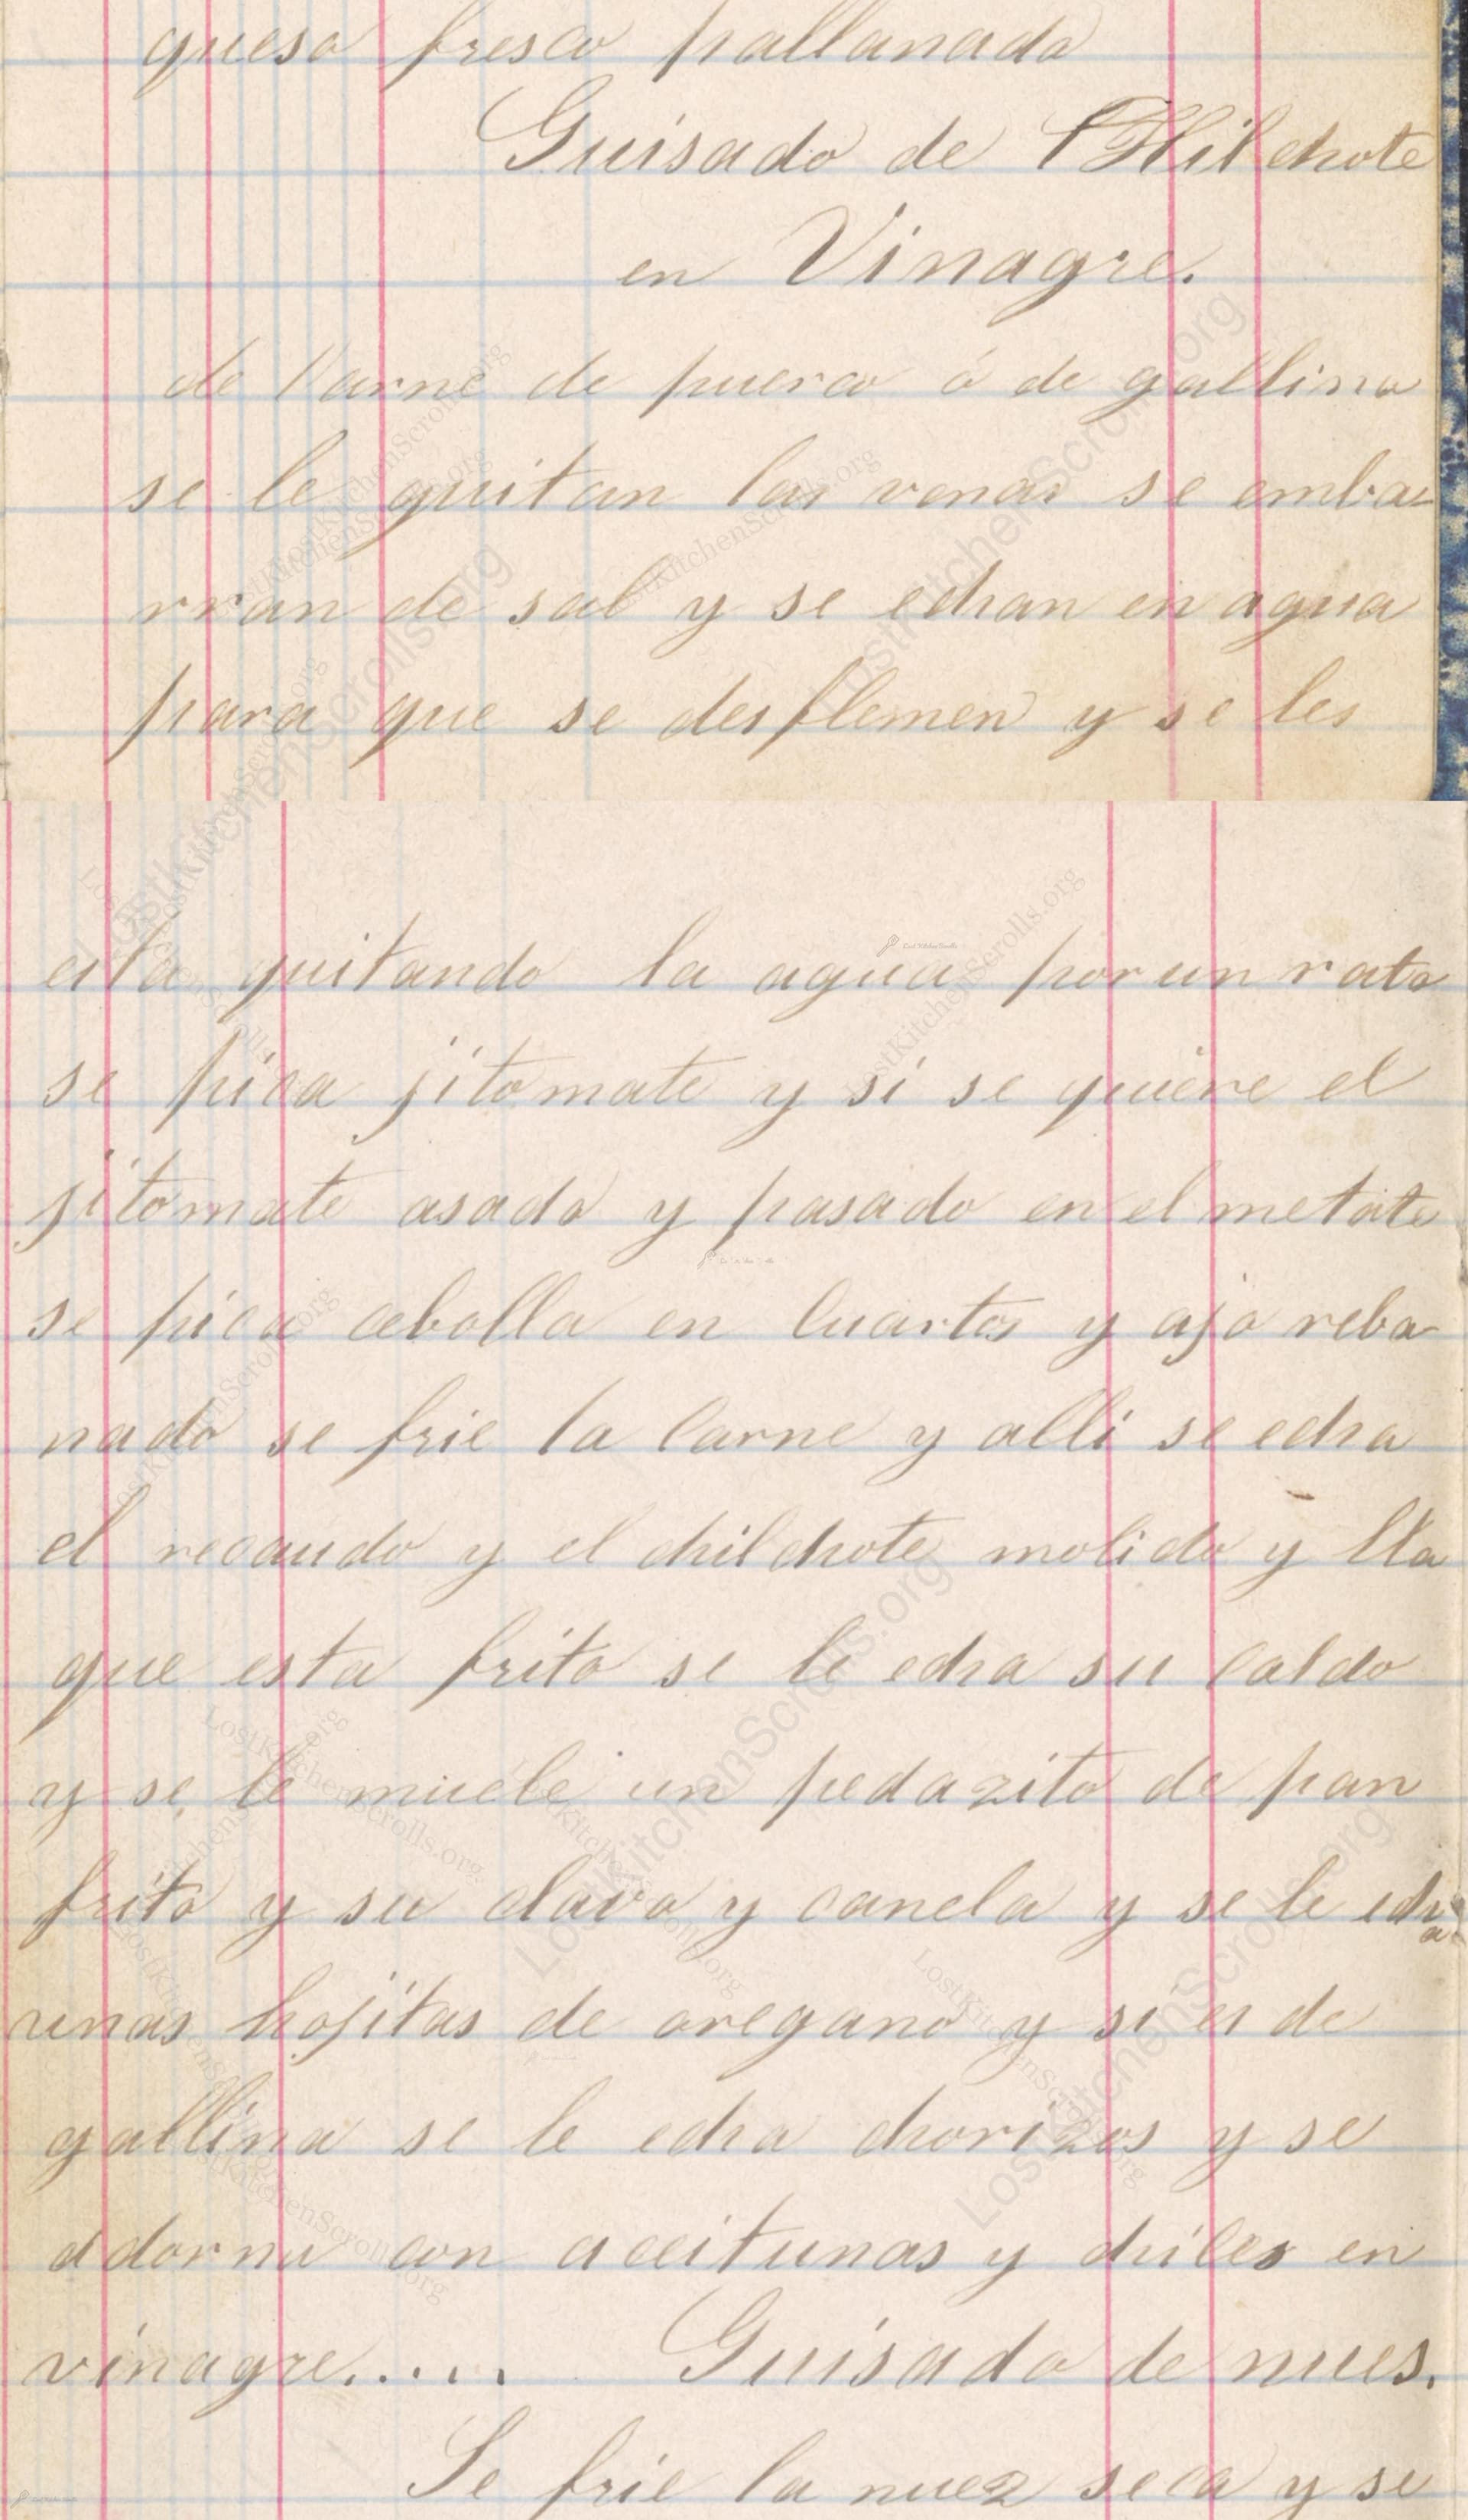 queso fresco pallanado
Guisado de Chilchote
en Vinagre.
de Carne de puerco ó de gallina
se le quitan las venas se emba-
rran de sal y se echan en agua
para que se desflemen y se les
esta quitando la agua por un rato
se pica jitomate y si se quiere el
jitomate asado y pasado en el metate
se pica cebolla en Cuartos y ajo reba-
nado se frie la Carne y alli se echa
el recaudo y el chilchote molido y lla
que esta frito se le echa su Caldo
y se le muele un pedazito de pan
frito y su clavo y canela y se le echa
unas hojitas de oregano y si es de
gallina se le echa chorizos y se
adorna con aceitunas y chiles en
vinagre..... Guisado de nues.
Se frie la nuez seca y se